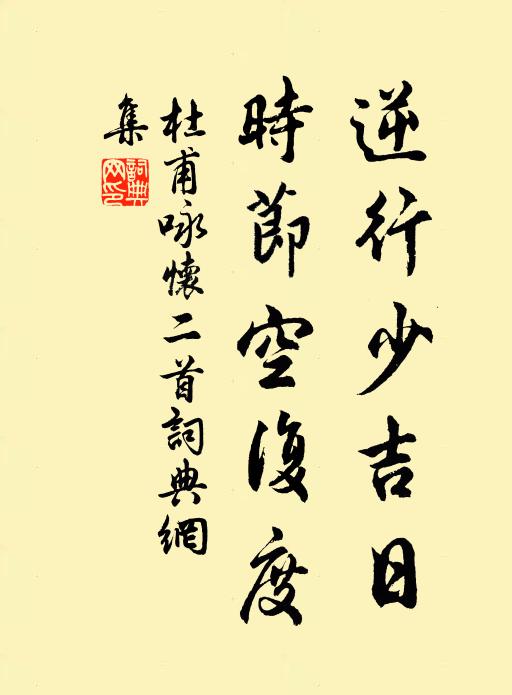 逆行少吉日
時節空復度
杜甫咏懷二首詞典網
集
詞典
网印